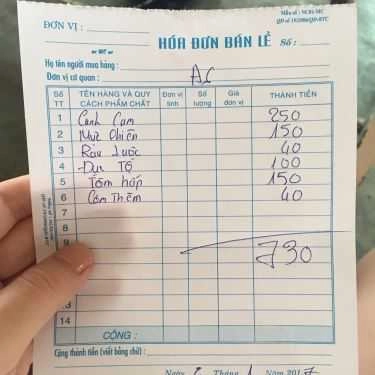 Mẫu số : NCB1-MC
ĐƠN VỊ :
QĐ số
HÓA ĐƠN BÁN LẺ Số :
Họ tên người mua hàng :
Đơn vị cơ quan :
Số TT TÊN HÀNG VÀ QUY CÁCH PHẨM CHẤT Đơn vị tính Số lượng Giá đơn vị THÀNH TIỀN
1 Canh Cam 250
2 Mực Chiên 150
3 Rau Luộc 40
4 100
5 Tôm hấp 150
6 Cơm Thêm 40
8
9 730
13
14
CỘNG :
Cộng thành tiền (viết bằng chữ) :
Ngày Tháng 1 Năm 2017